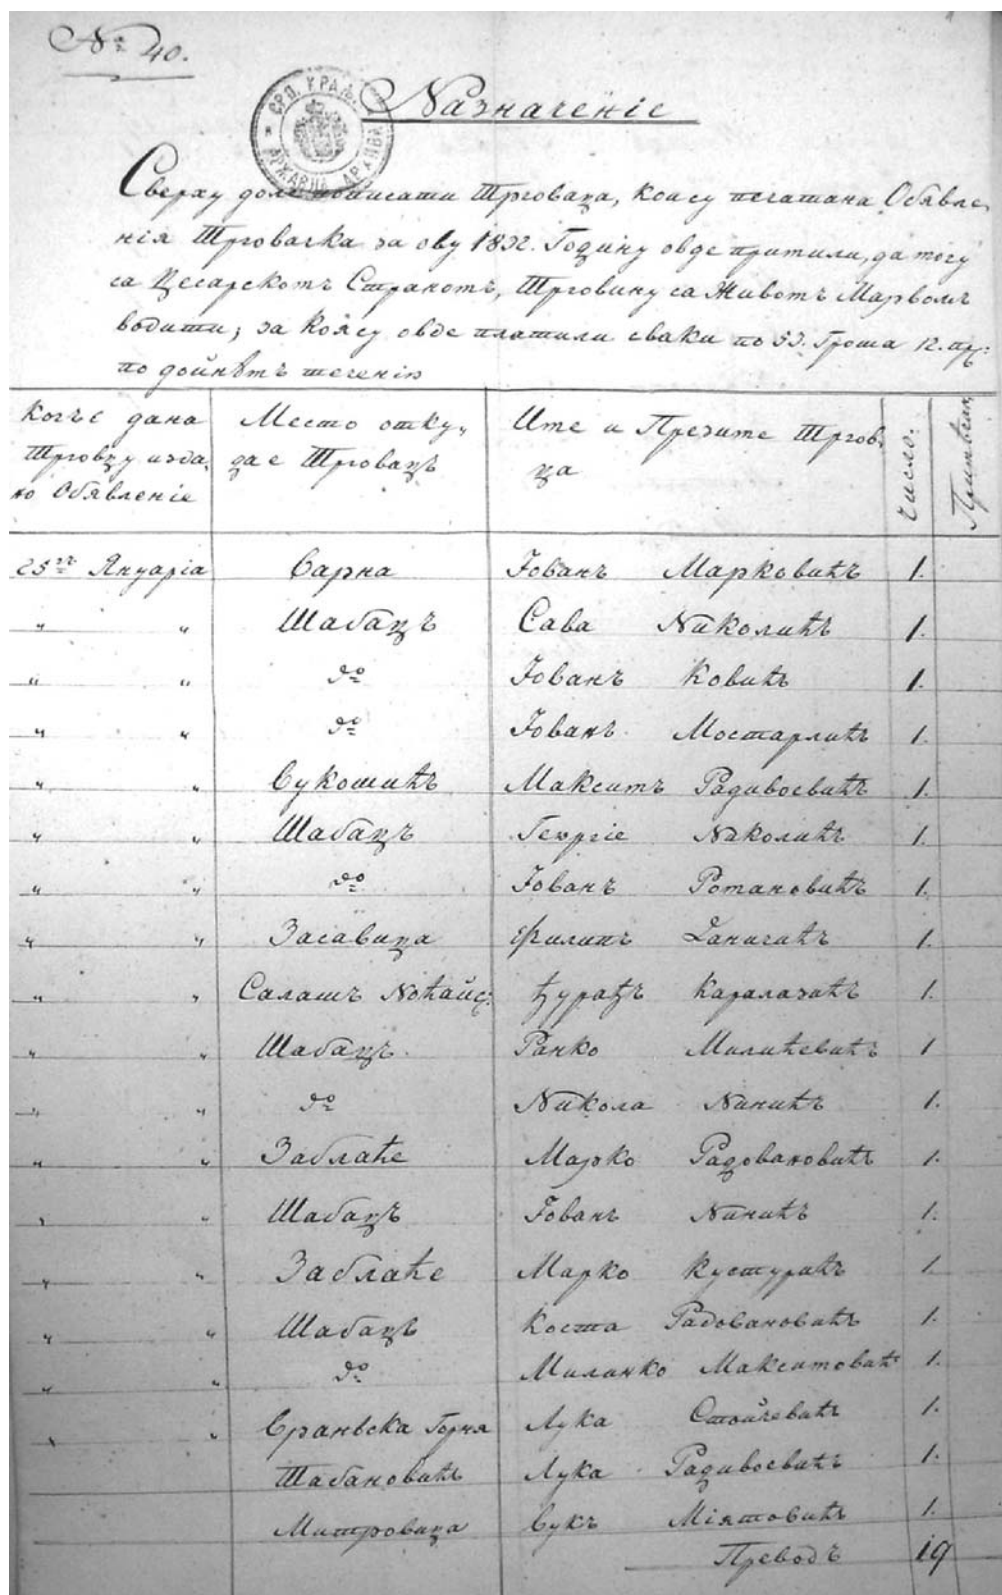 № 40.
СРП. КРАЉ. ДРЖАВНА АРХИВА
Назначеніе
Сверху доле пописати Трговаца, кои су печатана Обявле,
нія Трговачка за ову 1832. Годину овде примили, да могу
са Цесарскомъ Страномъ, Трговину са Живомъ Марвомъ
водити; за коясу овде платили сваки по 53. Гроша 12. пр:
по доинѣмъ теченію
Когъ є дана Трговцу изда, но Обявленіе | Место отку, да є Трговацъ | Име и Презиме Тргов, ца | Число: | Примѣч:
25гъ Януаріа | Варна | Јованъ Марковићъ | 1.
" " | Шабацъ | Сава Николићъ | 1.
" " | до | Јованъ Ковићъ | 1.
" " | до | Јованъ Мостарлић | 1.
" " | Вукошићъ | Максимъ Радивоевићъ | 1.
" " | Шабацъ | Георгіе Николићъ | 1.
" " | до | Јованъ Романовићъ | 1.
" " | Засавица | Филипъ Даничићъ | 1.
" " | Салашъ Ноћайс: | Ђурађъ Каралазићъ | 1.
" " | Шабацъ | Ранко Милићевићъ | 1
" " | до | Никола Нинићъ | 1.
" " | Заблаће | Марко Радовановићъ | 1.
" " | Шабацъ | Јованъ Нинићъ | 1.
" " | Заблаће | Марко Кустурићъ | 1.
" " | Шабацъ | Коста Радовановићъ | 1.
" " | до | Миланко Максимовић | 1.
" " | Врањска Горня | Лука Стойчевићъ | 1.
Шабановићъ | Лука Радивоевићъ | 1.
Митровица | Вукъ Міятовићъ | 1.
Преводъ | 19